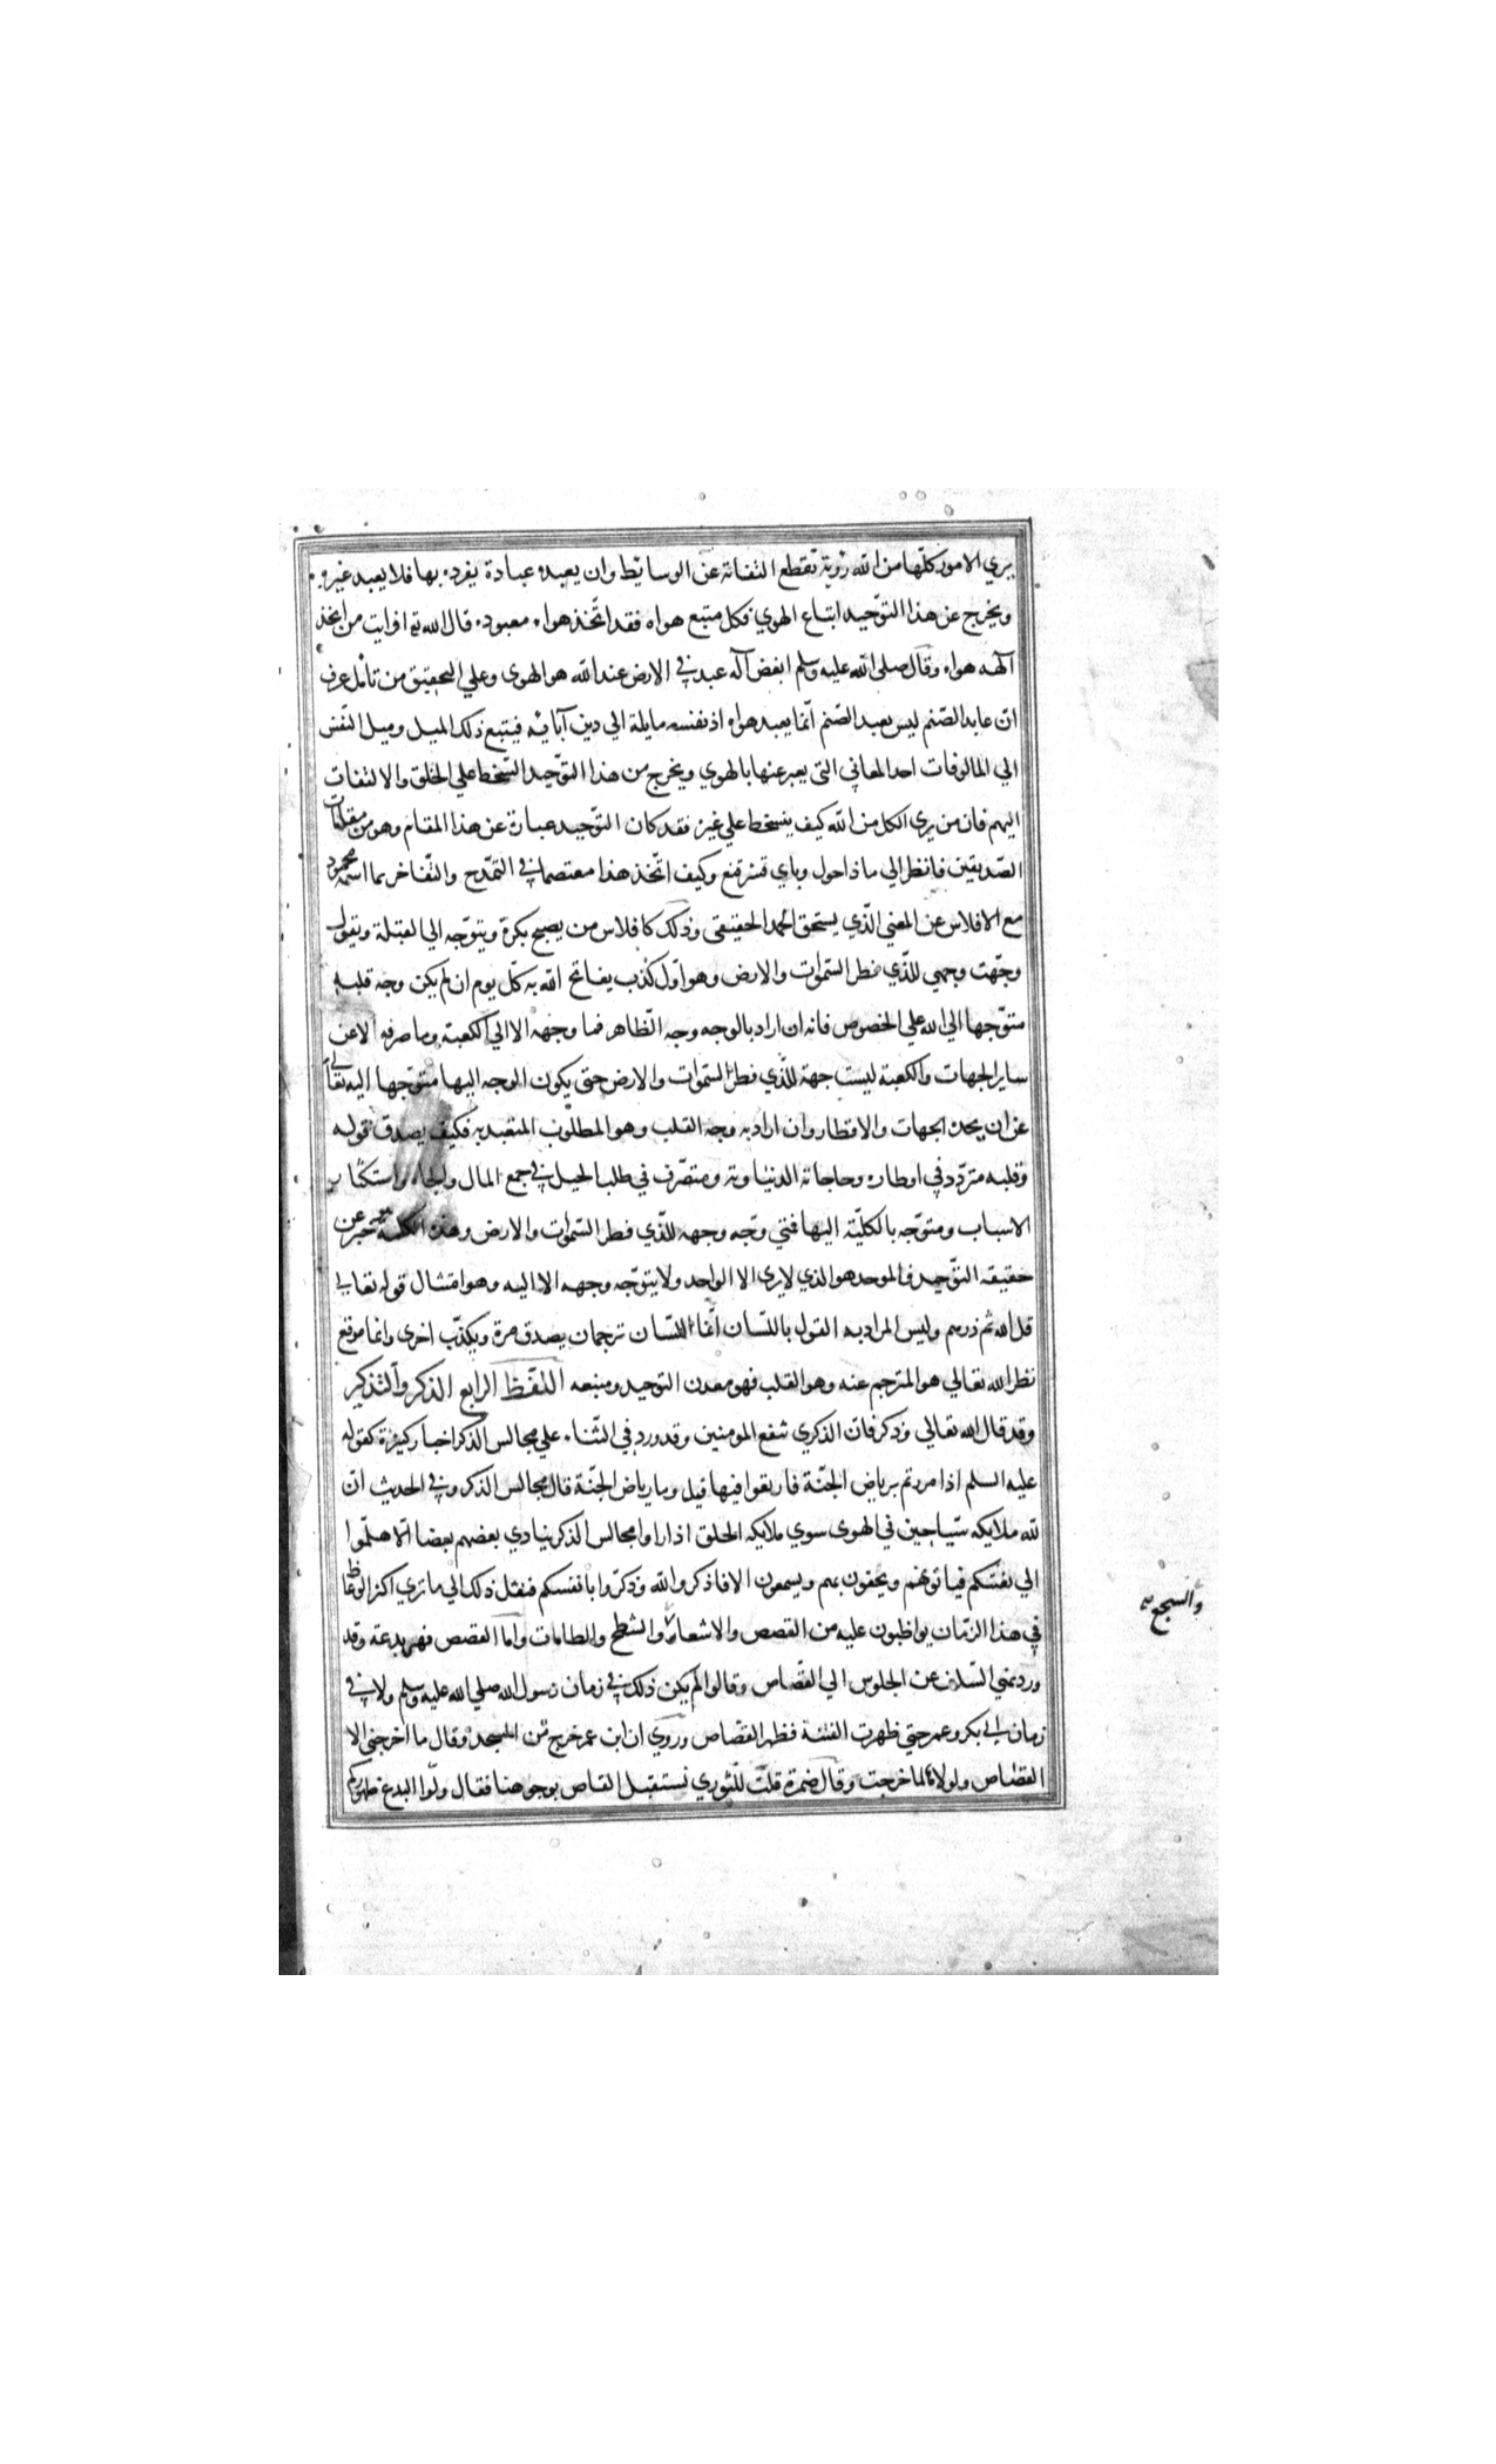 يري الامور كلّها من الله رؤية تقطع التفاته عن الوسائط وان يعبده عبادة يفرده بها فلا يعبد غيره
ويخرج عن هذا التوحيد اتباع الهوي فكل متبع هواه فقد اتّخذ هواه معبوده قال الله تع افرايت من اتخذ
آلهه هواه وقال صلى الله عليه وسلم ابغض آله عبد في الارض عند الله هو الهوى وعلي التحقيق من تامّل عرف
انّ عابد الصّنم ليس يعبد الصّنم انّما يعبد هواه اذ نفسه مايلة الي دين آبائه فيتبع ذلك الميل وميل النّفس
الي المالوفات احد المعاني التى يعبر عنها بالهوي ويخرج من هذا التوّحيد السّخط علي الخلق والالتفات
اليهم فان من يرى الكل من الله كيف يسخط علي غيره فقد كان التوّحيد عبارة عن هذا المقام وهو من مقامات
الصّديقين فانظر الي ماذا حول وباي قشر قنع وكيف اتّخذ هذا معتصما في التمّدح والتّفاخر بما اسمه محمود
مع الافلاس عن المعني الّذي يستحق الحمد الحقيقى وذلك كافلاس من يصبح بكرة ويتوّجه الي القبلة ويقول
وجّهت وجهي للّذي فطر السّموات والارض وهو اوّل كذب يفاتح الله به كلّ يوم ان لم يكن وجه قلبه
متوّجها الي الله علي الخصوص فانه ان اراد بالوجه وجه الظّاهر فما وجهه الا الي الكعبة وما صرفه الا عن
ساير الجهات والكعبة ليست جهة للّذي فطر السّموات والارض حتى يكون الوجه اليها متوّجها اليه تعالي
عن ان يحده الجهات والاقطار وان اراد به وجه القلب وهو المطلوب المتعبد به فكيف يصدق قوله
وقلبه متردّد في اوطاره وحاجاته الدنياوية ومتصّرف في طلب الحيل في جمع المال والجاه واستكثار
الاسباب ومتوّجه بالكليّة اليها فمتي وجّه وجهه للّذي فطر السّموات والارض وهذه الكلمة خبر عن
حقيقه التوّحيد فالموحد هو الذي لا يرى الا الواحد ولا يتوّجه وجهه الا اليه وهو امتثال قوله تعالي
قل الله ثم ذرهم وليس المراد به القول باللسان انّما اللسّان ترجمان يصدق مرة ويكذّب اخرى وانما موقع
نظر الله تعالي هو المترجم عنه وهو القلب فهو معدن التوحيد ومنبعه اللفظ الرابع الذكر والتّذكير
وقد قال الله تعالي وذكر فانّ الذكري تنفع المومنين وقد ورد في الثّناء علي مجالس الذكر اخبار كثيرة كقوله
عليه السلم اذا مررتم برياض الجنّة فارتعوا فيها قيل وما رياض الجنّة قال مجالس الذكر وفي الحديث انّ
لله ملايكه سّياحين في الهوى سوي ملايكه الخلق اذا راوا مجالس الذكر ينادي بعضهم بعضا الا هلّموا
الي بغيتكم فياتونهم ويحفون بهم ويسمعون الا فاذكروا الله وذكّروا بانفسكم فنقل ذلك الي ما تري اكثر الوعاظ
في هذا الزّمان يواظبون عليه من القصص والاشعار والشطح والطامات وامّا القصص فهي بدعة وقد
ورد نهي السّلف عن الجلوس الي القصّاص وقالوا لم يكن ذلك في زمان رسول الله صلي الله عليه وسلم ولا في
زمان ابي بكر وعمر حتي ظهرت الفتنة فظهر القصّاص وروي ان ابن عمر خرج من المسجد وقال ما اخرجني الا
القصّاص ولولاه لما خرجت وقال ضمرة قلت للثوري نستقبل القاص بوجوهنا فقال ولّوا البدع ظهوركم
والسجع